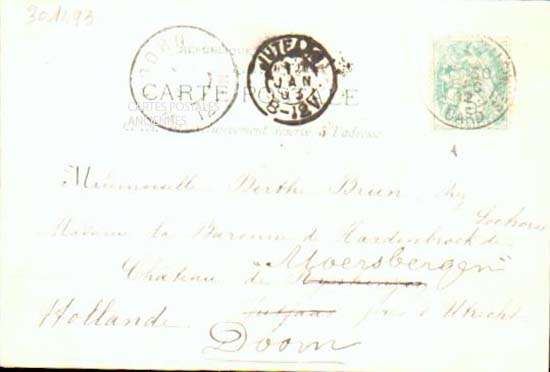 301493
DOORN
RÉPUBLIQUE
CARTE POSTALE
CARTES POSTALES
ANCIENNES
JAN
03
8-12V
Ce côté est exclusivement réservé à l'adresse
GARD
Mademoiselle Berthe Brun chez
Madame la Baronne de Hardenbroek de
Château de "Moersbergen"
Hollande. près d'Utrecht
Doorn